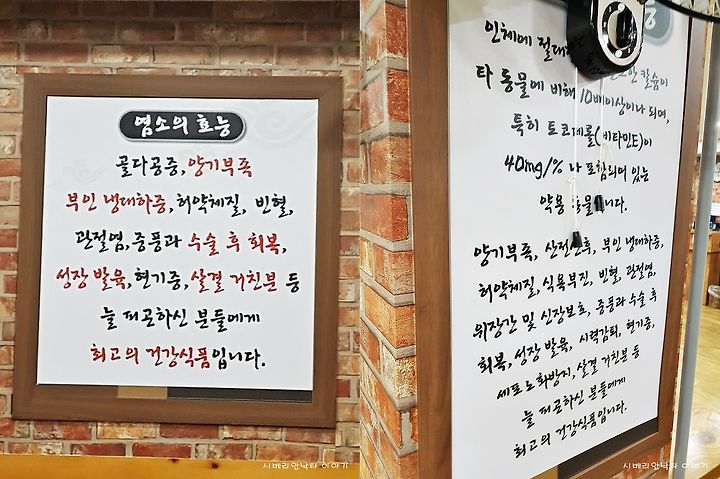 염소의 효능
골다공증, 양기부족
부인 냉대하증, 허약체질, 빈혈,
관절염, 중풍과 수술 후 회복,
성장 발육, 현기증, 살결 거친분 등
늘 피곤하신 분들에게
최고의 건강식품입니다.
시베리안낙타 이야기
능
인체에 절대
칼슘이
타 동물에 비해 10배이상이나 되며,
특히 토코페롤(비타민E)이
40mg/% 나 포함되어 있는
약용 동물입니다.
양기부족, 산전산후, 부인 냉대하증,
허약체질, 식욕부진, 빈혈, 관절염,
위장간 및 신장보호, 중풍과 수술 후
회복, 성장 발육, 시력감퇴, 현기증,
세포노화방지, 살결 거친분 등
늘 피곤하신 분들에게
최고의 건강식품입니다.
시베리안낙타 이야기